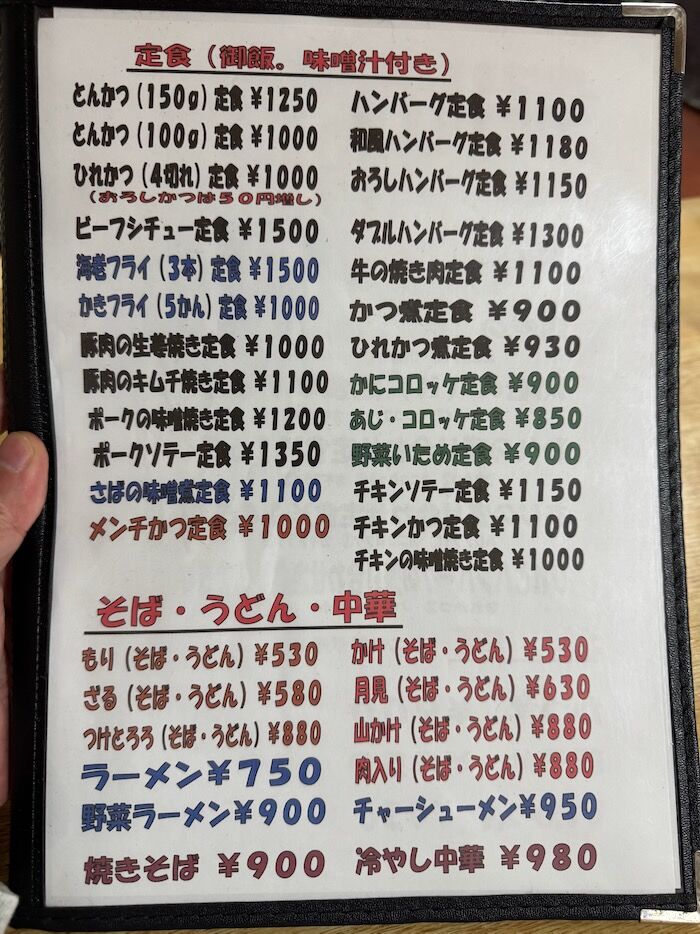 定食（御飯。味噌汁付き）
とんかつ（150g）定食 ¥1250
とんかつ（100g）定食 ¥1000
ひれかつ（4切れ）定食 ¥1000
（おろしかつは50円増し）
ビーフシチュー定食 ¥1500
海老フライ（3本）定食 ¥1500
かきフライ（5かん）定食 ¥1000
豚肉の生姜焼き定食 ¥1000
豚肉のキムチ焼き定食 ¥1100
ポークの味噌焼き定食 ¥1200
ポークソテー定食 ¥1350
さばの味噌煮定食 ¥1100
メンチかつ定食 ¥1000
ハンバーグ定食 ¥1100
和風ハンバーグ定食 ¥1180
おろしハンバーグ定食 ¥1150
ダブルハンバーグ定食 ¥1300
牛の焼き肉定食 ¥1100
かつ煮定食 ¥900
ひれかつ煮定食 ¥930
かにコロッケ定食 ¥900
あじ・コロッケ定食 ¥850
野菜いため定食 ¥900
チキンソテー定食 ¥1150
チキンかつ定食 ¥1100
チキンの味噌焼き定食 ¥1000
そば・うどん・中華
もり（そば・うどん）¥530
ざる（そば・うどん）¥580
つけとろろ（そば・うどん）¥880
ラーメン¥750
野菜ラーメン¥900
焼きそば ¥900
かけ（そば・うどん）¥530
月見（そば・うどん）¥630
山かけ（そば・うどん）¥880
肉入り（そば・うどん）¥880
チャーシューメン¥950
冷やし中華 ¥980